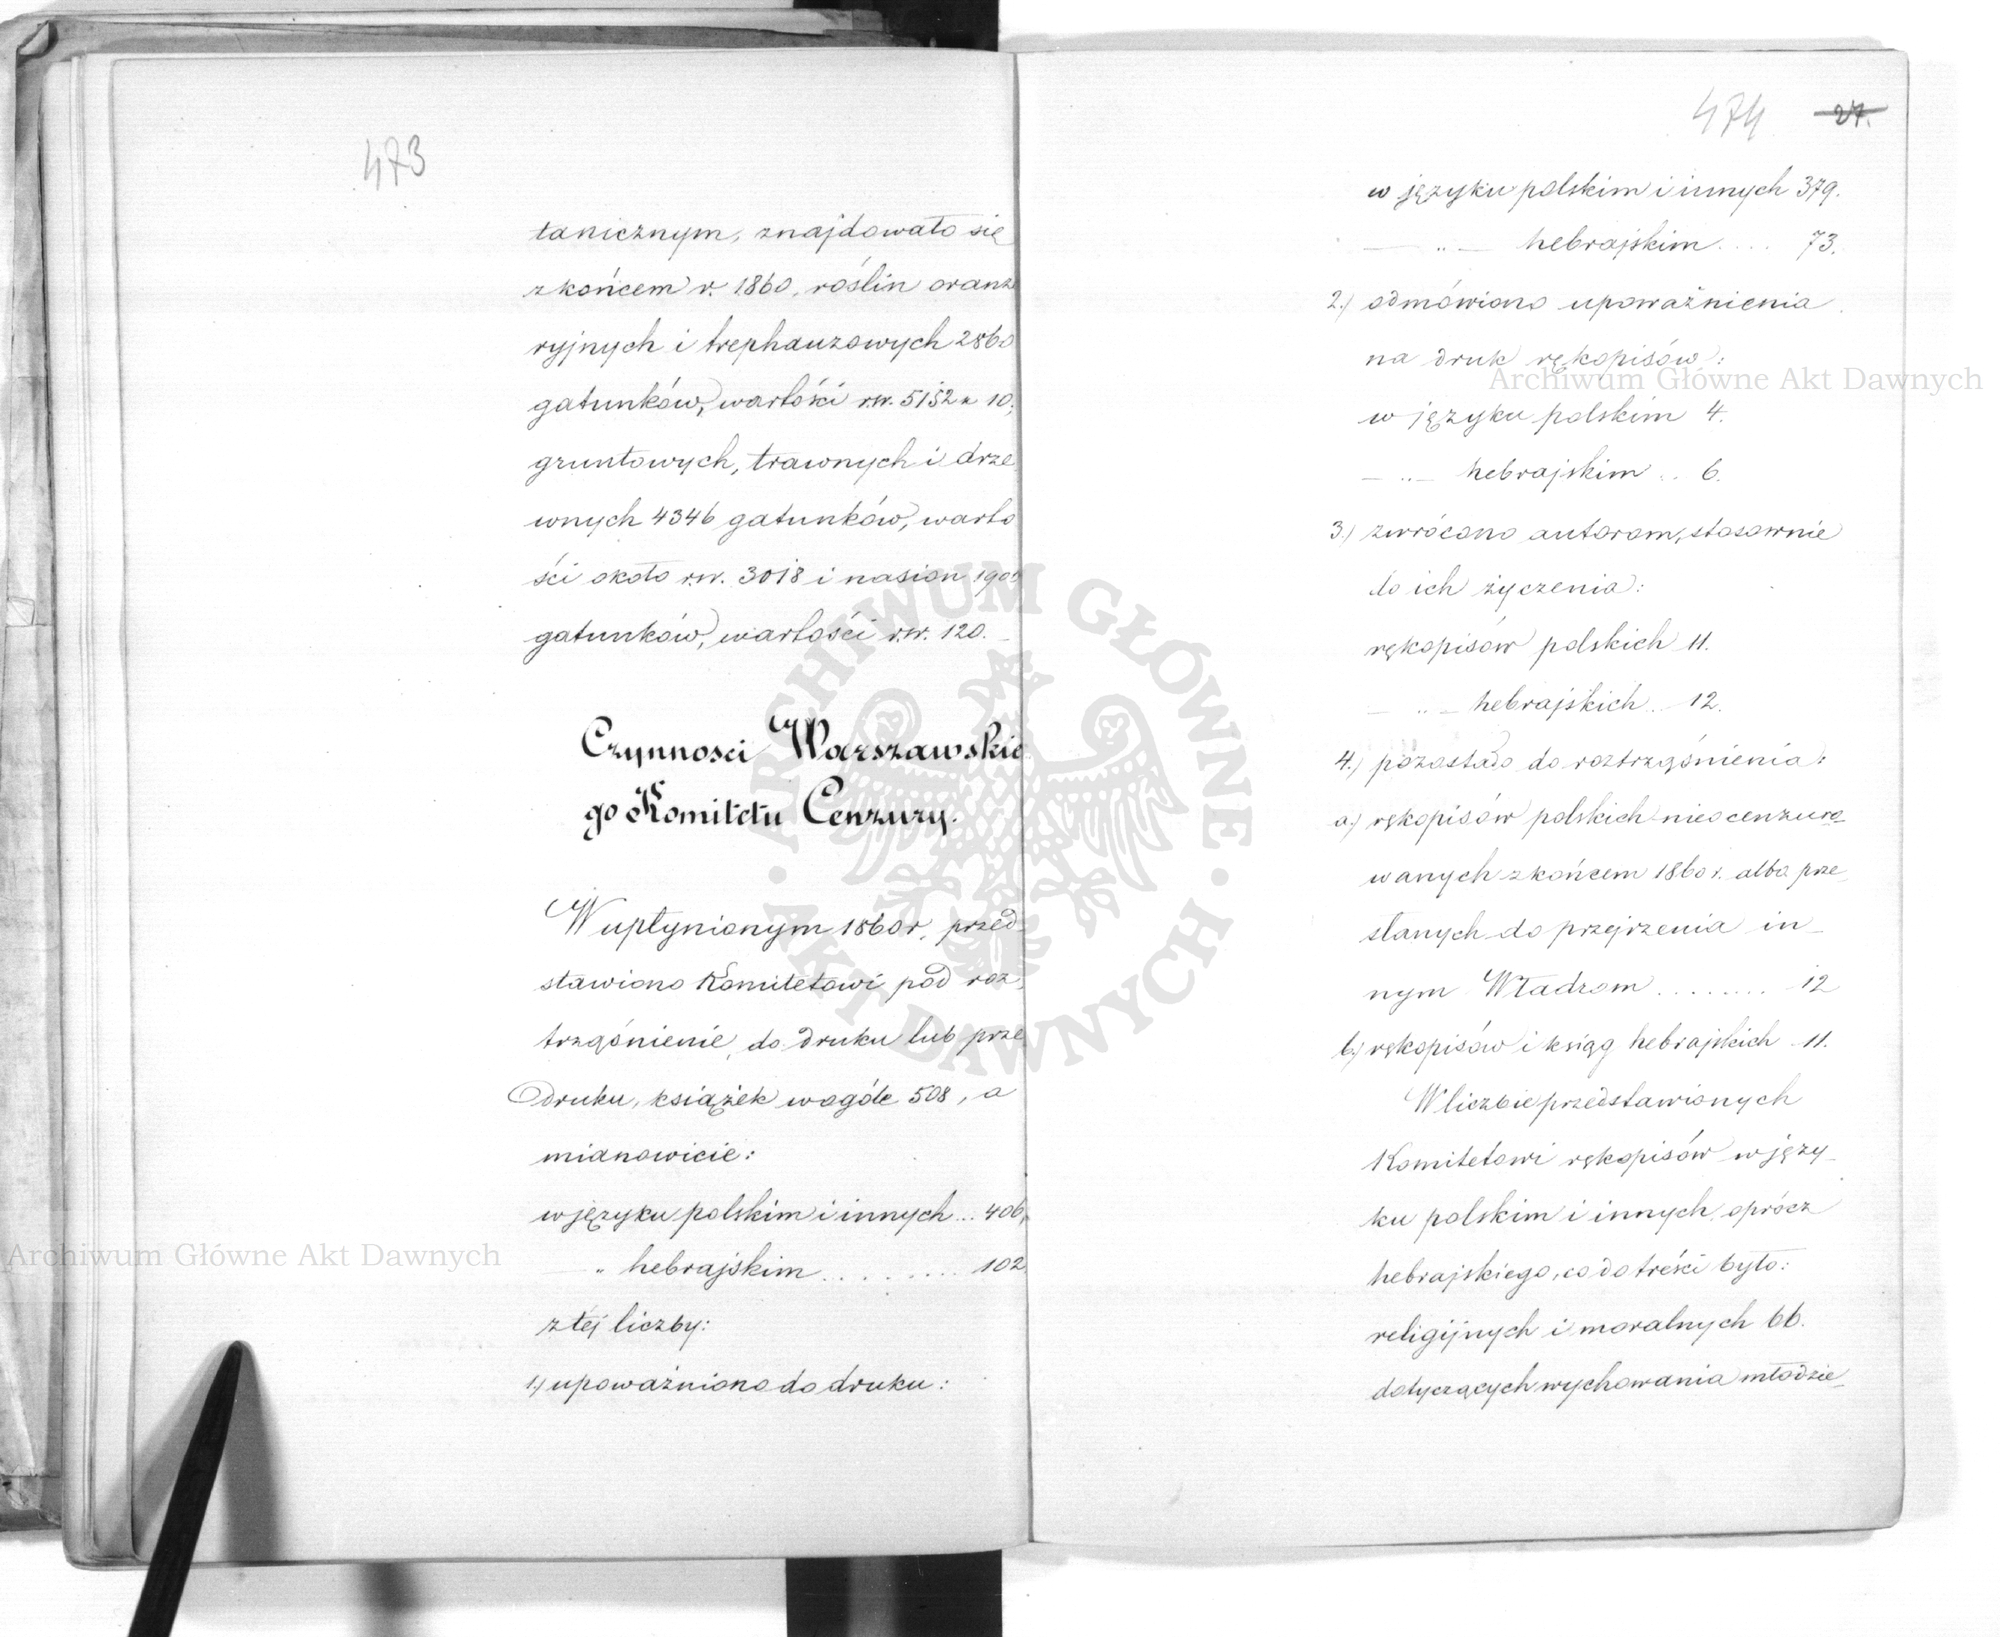 473
tanicznym, znajdowało się
z końcem r. 1860, roślin oranże
ryjnych i trephauzowych 2860
gatunków, wartości rsr. 5152 k 10,
gruntowych, trawnych i drze
wnych 4346 gatunków, warto
ści około rsr. 3018 i nasion 1900
gatunków, wartości rsr. 120.
Czynnosci Warszawskie
go Komitetu Cenzury.
W upłynionym 1860 r. przed
stawiono Komitetowi pod roz,
trząśnienie, do druku lub prze
druku, książek wogóle 508, a
mianowicie:
w języku polskim i innych ... 406,
" hebrajskim ......... 102
z téj liczby:
1,) upoważniono do druku:
474 27.
w języku polskim i innych 379.
— " — hebrajskim .... 73.
2.) odmówiono upoważnienia
na druk rękopisów:
w języku polskim 4.
— " — hebrajskim .. 6.
3.) zwrócono autorom, stosownie
do ich życzenia:
rękopisów polskich 11.
— " — hebrajskich .. 12.
4.) pozostało do roztrząśnienia:
a.) rękopisów polskich nieocenzuro-
wanych z końcem 1860 r. albo prze,
słanych do przejrzenia in-
nym Władzom ........ 12
b.) rękopisów i ksiąg hebrajskich 11.
W liczbie przedstawionych
Komitetowi rękopisów w języ-
ku polskim i innych, oprócz
hebrajskiego, co do treści było:
religijnych i moralnych 66.
dotyczących wychowania młodzie-
Archiwum Główne Akt Dawnych
Archiwum Główne Akt Dawnych
ARCHIWUM GŁÓWNE · AKT DAWNYCH ·